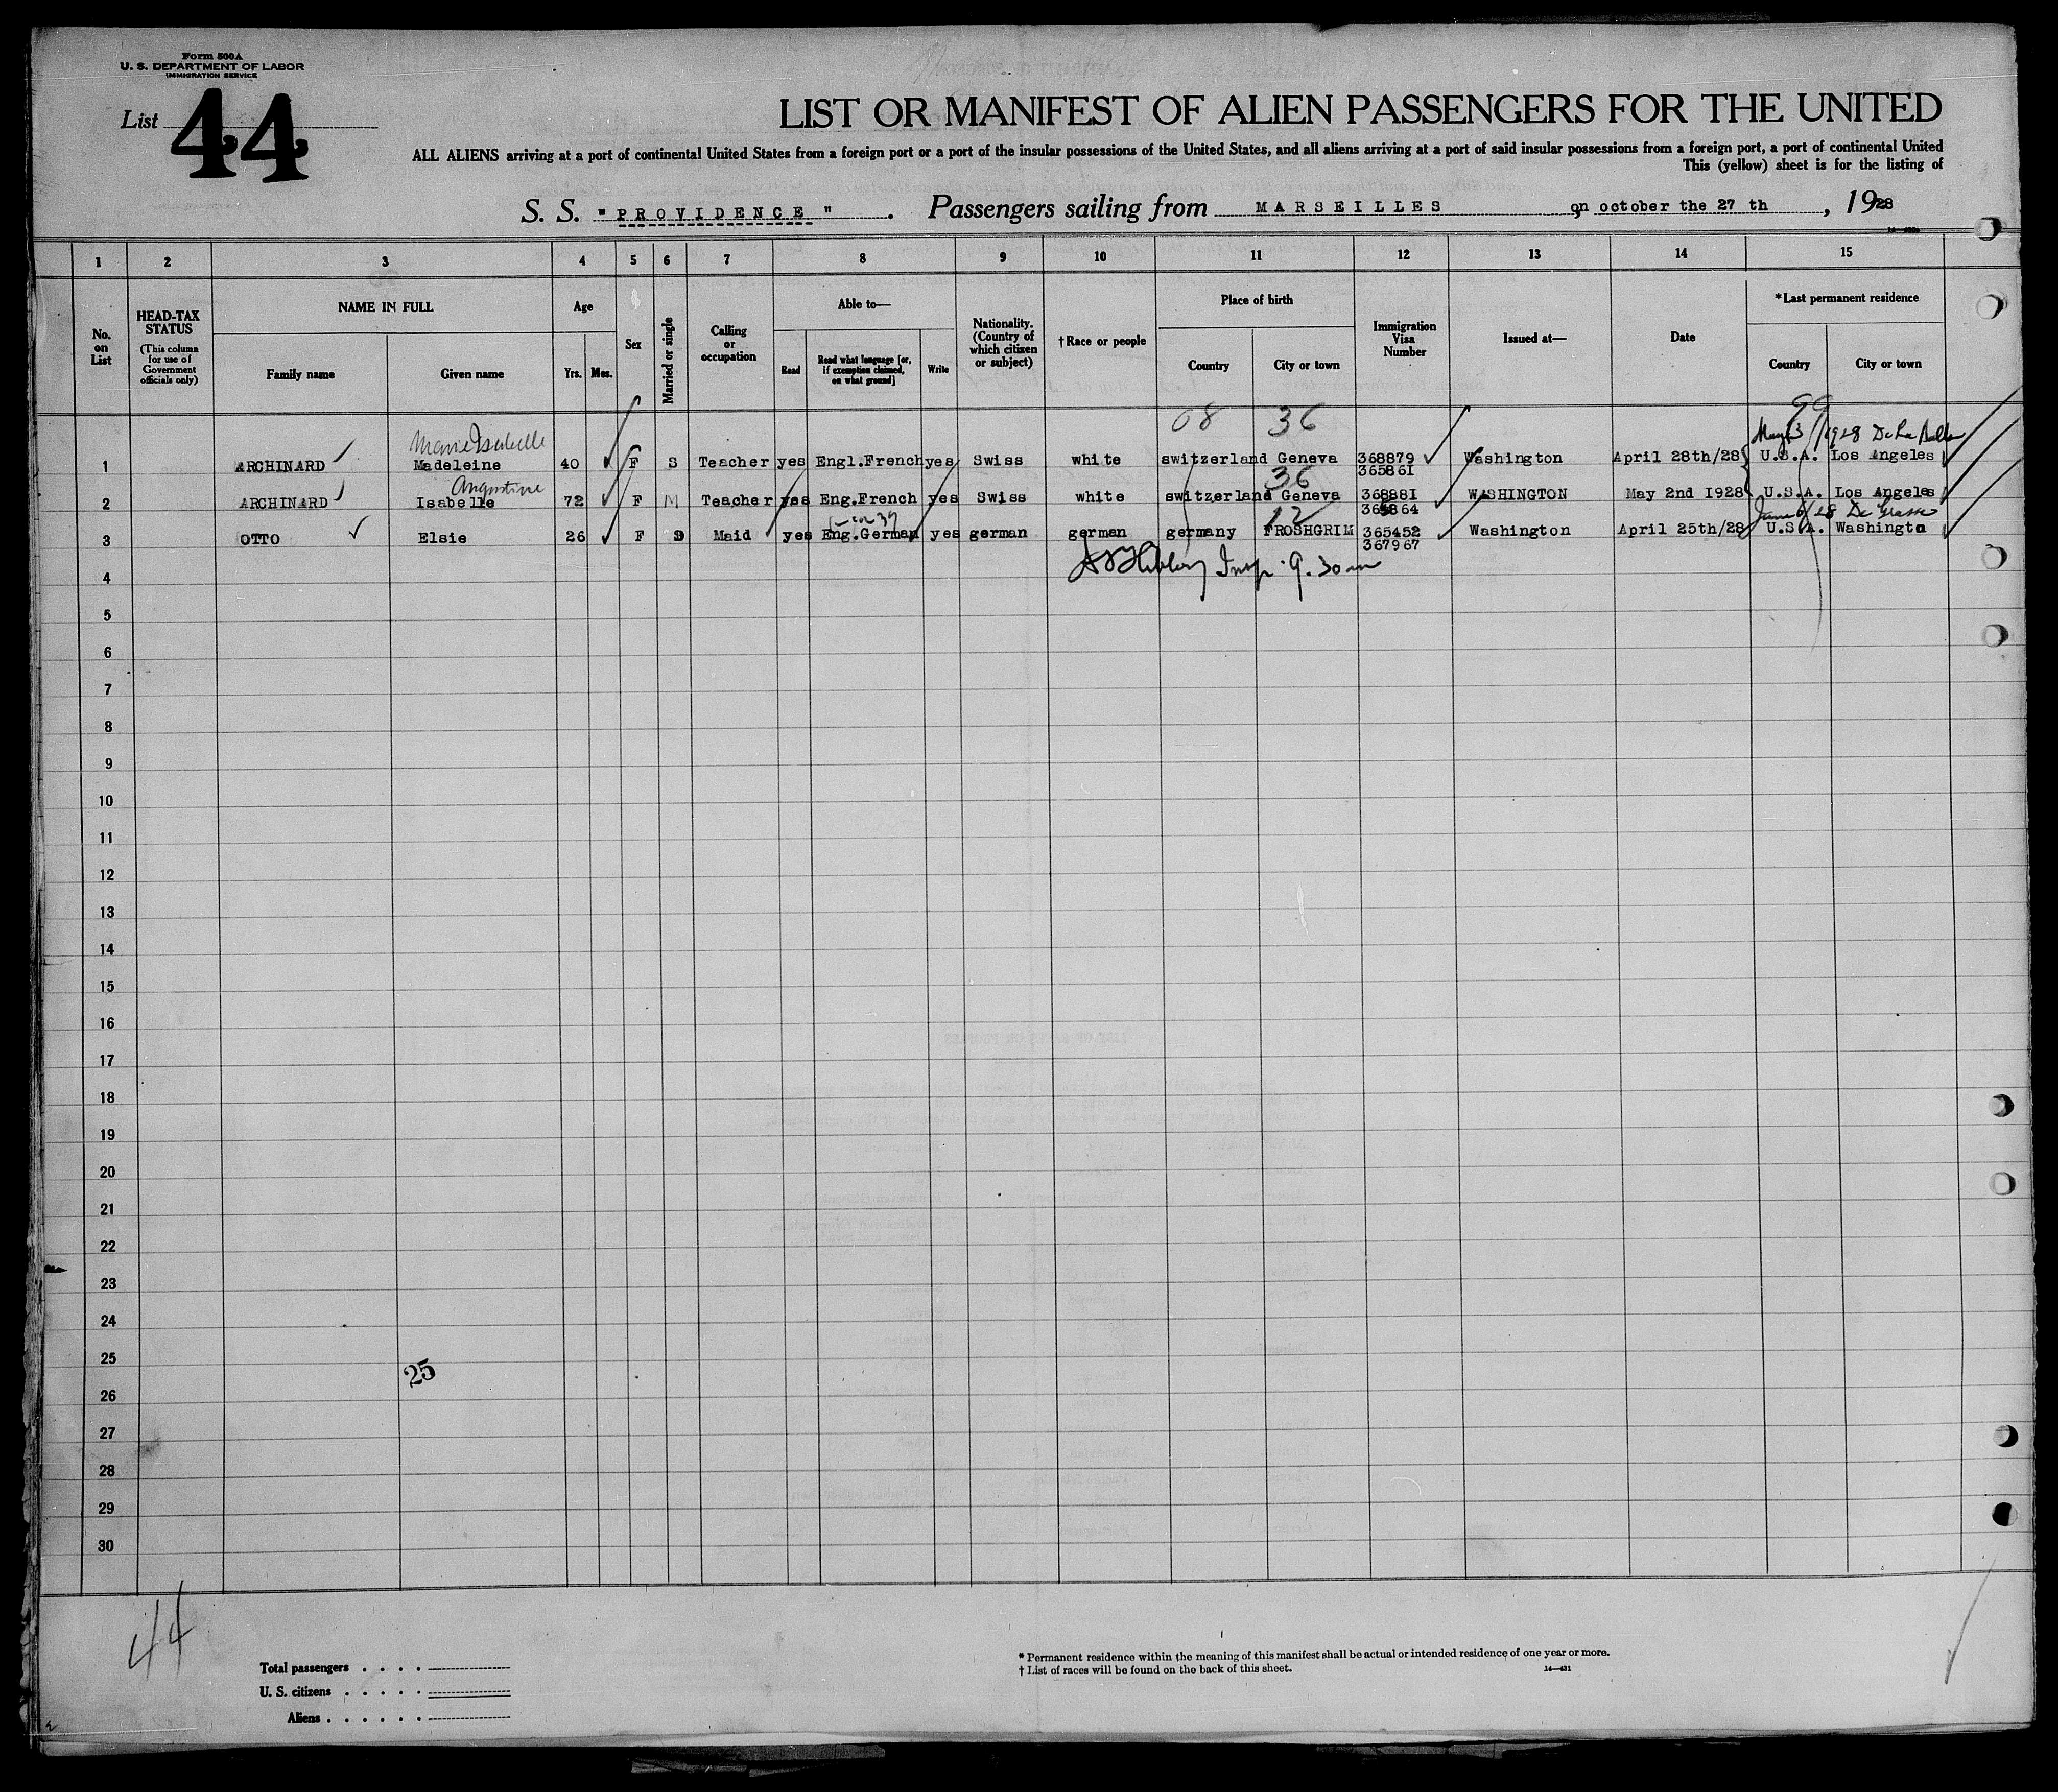 Form 500A
U. S. DEPARTMENT OF LABOR
IMMIGRATION SERVICE
List 44
LIST OR MANIFEST OF ALIEN PASSENGERS FOR THE UNITED
ALL ALIENS arriving at a port of continental United States from a foreign port or a port of the insular possessions of the United States, and all aliens arriving at a port of said insular possessions from a foreign port, a port of continental United
This (yellow) sheet is for the listing of
S. S. "PROVIDENCE". Passengers sailing from MARSEILLES on october the 27 th, 1928
1 2 3 4 5 6 7 8 9 10 11 12 13 14 15
No. on List
HEAD-TAX STATUS
(This column for use of Government officials only)
NAME IN FULL
Family name
Given name
Age
Yrs. Mos.
Sex
Married or single
Calling or occupation
Able to—
Read
Read what language [or, if exemption claimed, on what ground]
Write
Nationality. (Country of which citizen or subject)
†Race or people
Place of birth
Country
City or town
Immigration Visa Number
Issued at—
Date
*Last permanent residence
Country
City or town
08 36 99
Marie Isabelle May 3/1928 De La Salle
1 ARCHINARD Madeleine 40 F S Teacher yes Engl.French yes Swiss white switzerland Geneva 368879 Washington April 28th/28 U.S.A. Los Angeles
365861
Augustine 36
2 ARCHINARD Isabelle 72 F M Teacher yes Eng.French yes Swiss white switzerland Geneva 368881 WASHINGTON May 2nd 1928 U.S.A. Los Angeles
365864
12 June 6/28 De Grasse
3 OTTO Elsie 26 F S Maid yes Eng.German yes german german germany FROSHGRIM 365452 Washington April 25th/28 U.S.A. Washingto
367967
4 Insp. 9.30 am
5
6
7
8
9
10
11
12
13
14
15
16
17
18
19
20
21
22
23
24
25
25
26
27
28
29
30
44
Total passengers . . . .
U. S. citizens . . . . .
Aliens . . . . . .
* Permanent residence within the meaning of this manifest shall be actual or intended residence of one year or more.
† List of races will be found on the back of this sheet. 14—431